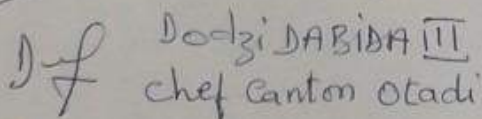 Dodzi DABIDA III
chef canton Otadi